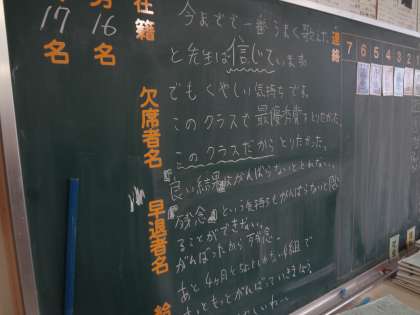 在籍
男16名
17名
欠席者名
早退者名
連絡
7 6 5 4 3 2
今までで一番うまく歌えた
と先生は信じています
でもくやしい気持ちです。
このクラスで最優秀賞をとりたかった。
このクラスだからとりたかった。
良い結果はがんばらないととれない。
残念という気持ちもがんばらないと感
ることができない。
がんばったから残念。
あと4ヶ月
もっともっとがんばっていきましょう